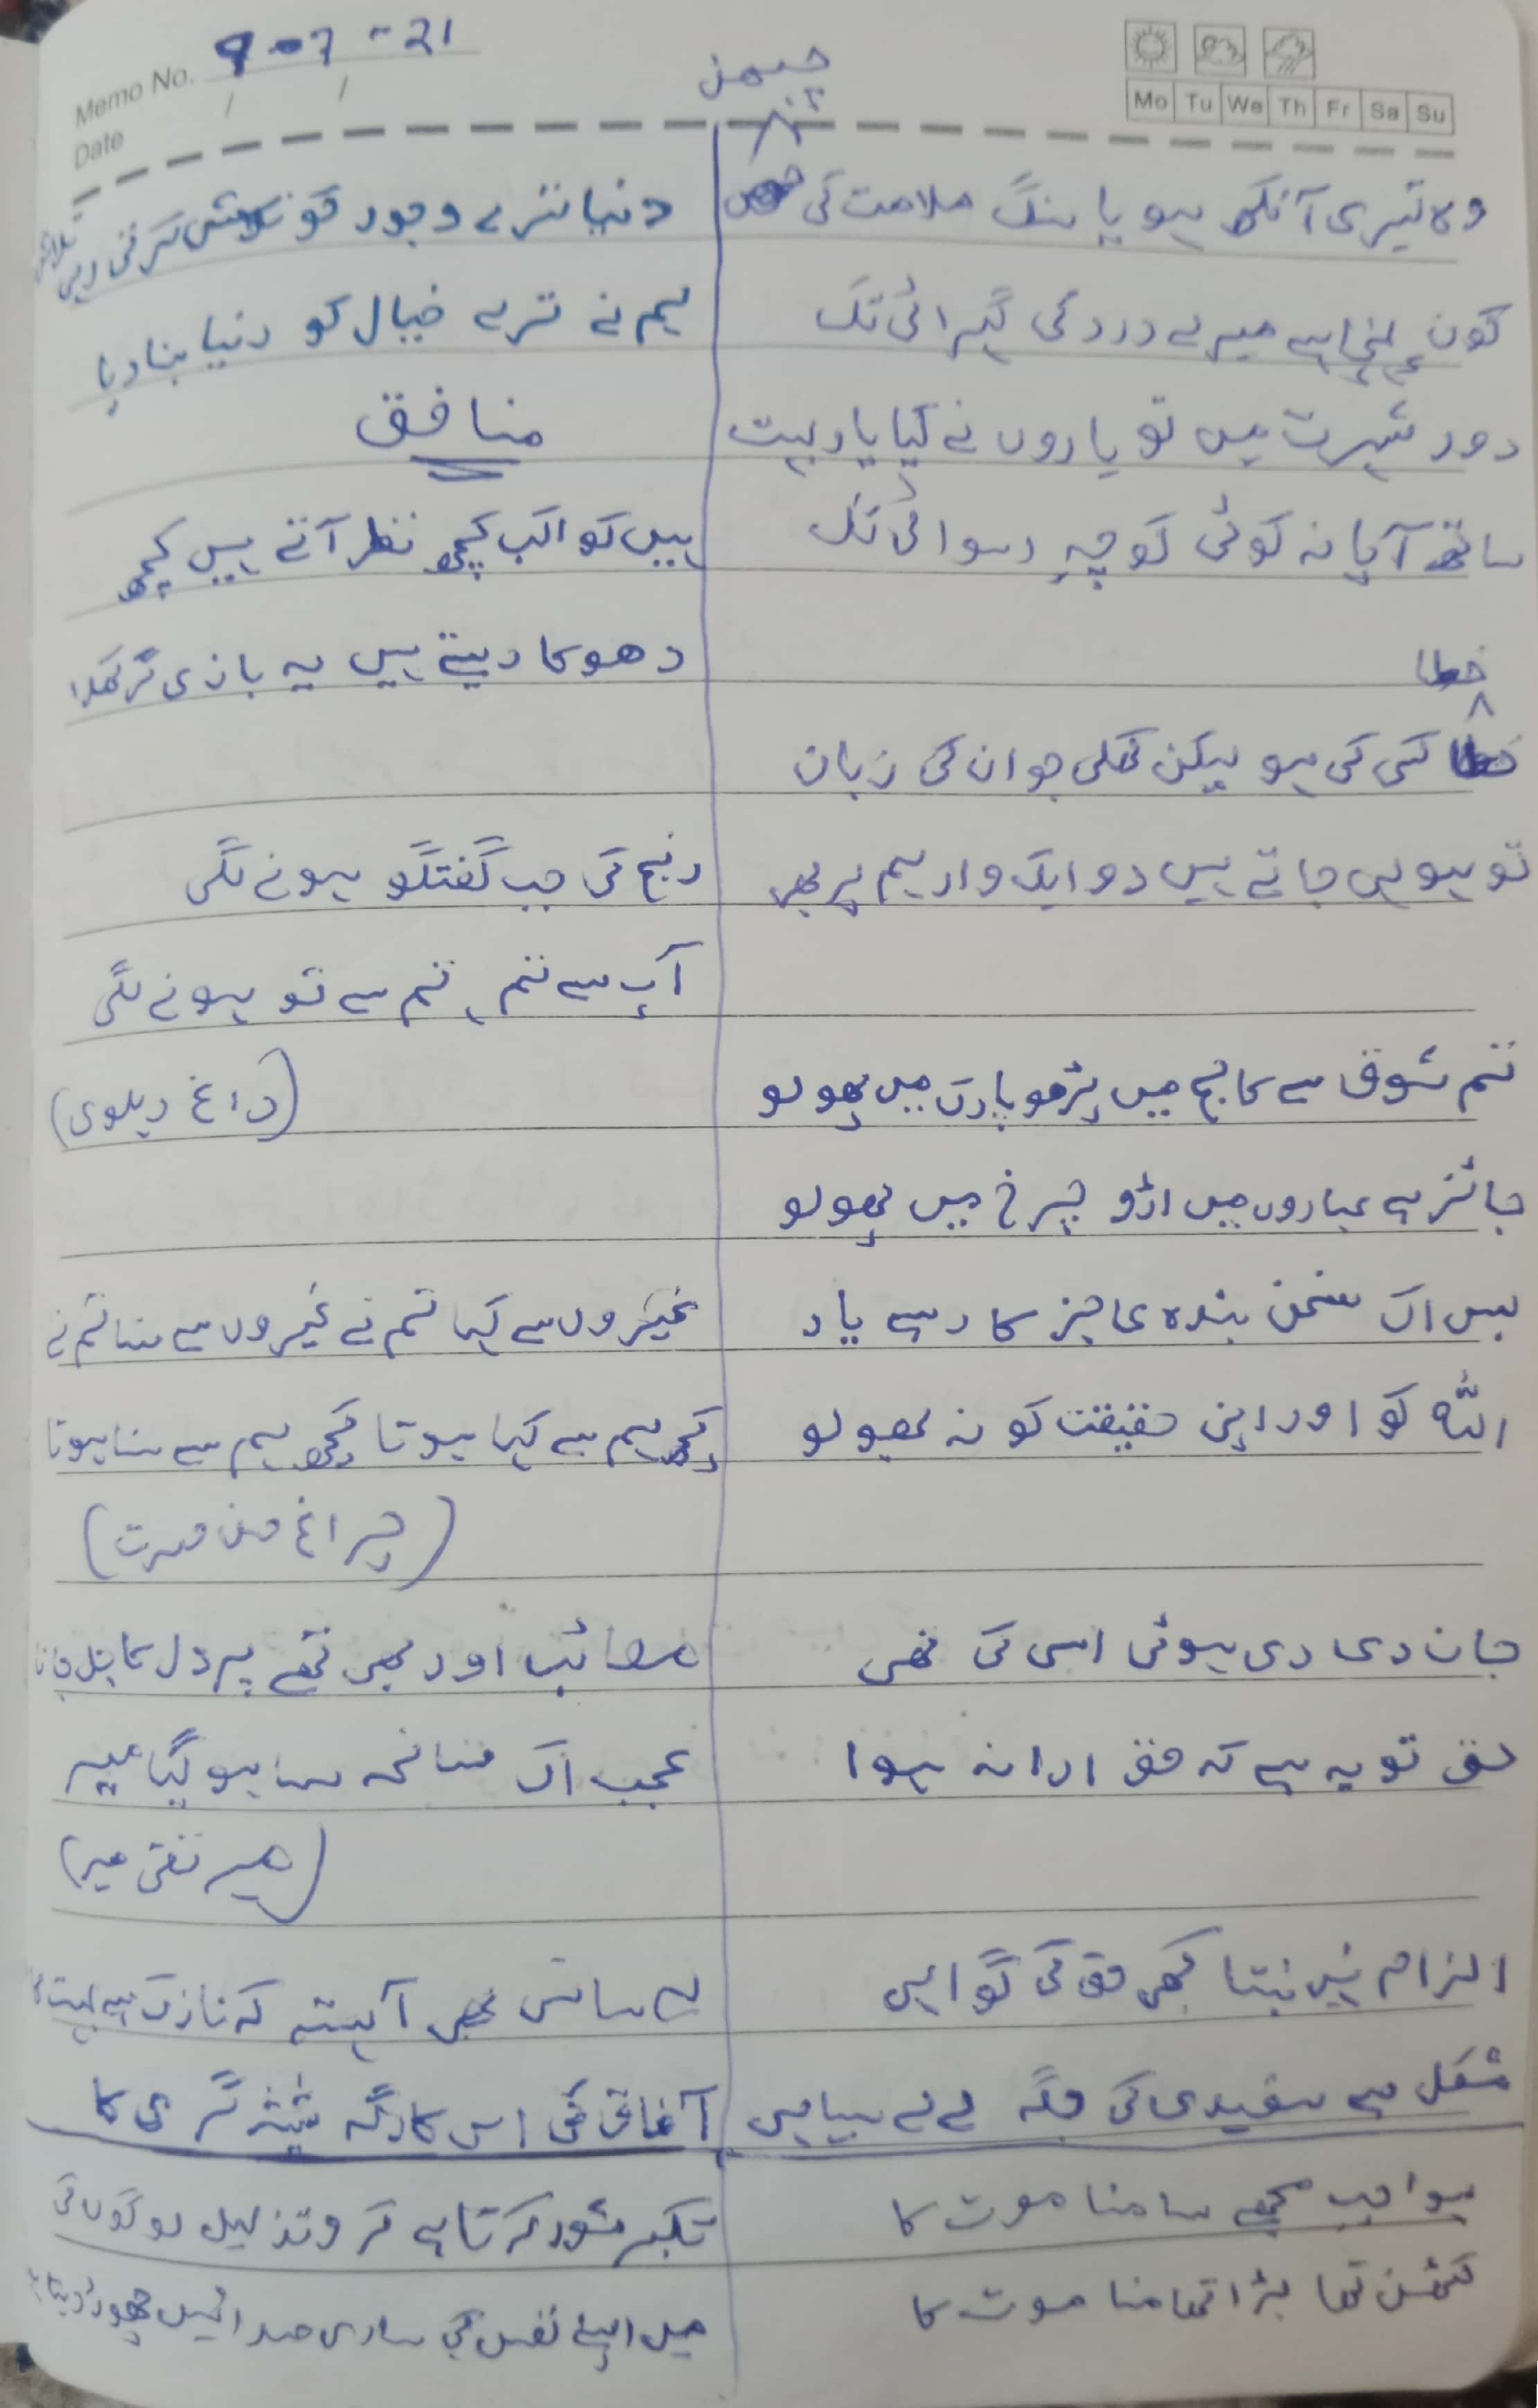 Memo No. 9-07-21
Date / /
Mo Tu We Th Fr Sa Su
چبھن
وہ تیری آنکھ ہو یا سنگ ملامت کی
کون پہنچا ہے میرے درد کی گہرائی تک
دور شہرت میں تو یاروں نے کیا یاد بہت
ساتھ آیا نہ کوئی کوچہِ رسوائی تک
خطا
خطا کسی کی ہو لیکن کھلی جو ان کی زبان
تو ہو ہی جاتے ہیں دو ایک وار ہم پر بھی
تم شوق سے کالج میں پڑھو پارک میں پھولو
جائز ہے غباروں میں اڑو چرخ میں جھولو
بس اک سخن بندہ عاجز کا رہے یاد
اللہ کو اور اپنی حقیقت کو نہ بھولو
جان دی دی ہوئی اسی کی تھی
حق تو یہ ہے کہ حق ادا نہ ہوا
الزام نہیں بنتا کبھی حق کی گواہی
مشکل ہے سفیدی کی جگہ لے لے سیاہی
ہوا جب مجھے سامنا موت کا
کٹھن تھا بڑا تھامنا موت کا
دنیا ترے وجود کو تلاش کرتی رہی
تلاش
ہم نے ترے خیال کو دنیا بنا دیا
منافق
ہیں کواکب کچھ نظر آتے ہیں کچھ
دھوکا دیتے ہیں یہ بازی گر کھلا
رنج کی جب گفتگو ہونے لگی
آپ سے تم، تم سے تو ہونے لگی
(داغ دہلوی)
غیروں سے کہا تم نے غیروں سے سنا تم نے
کچھ ہم سے کہا ہوتا کچھ ہم سے سنا ہوتا
(چراغ حسن حسرت)
مصائب اور بھی تھے پر دل کا جانا
عجب اک سانحہ سا ہو گیا ہے
(میر تقی میر)
لے سانس بھی آہستہ کہ نازک ہے بہت
آفاق کی اس کارگہ شیشہ گری کا
تکبر شور کرتا ہے کرو تذلیل لوگوں کی
میں اپنے نفس کی ساری صدائیں چھوڑ دیتا